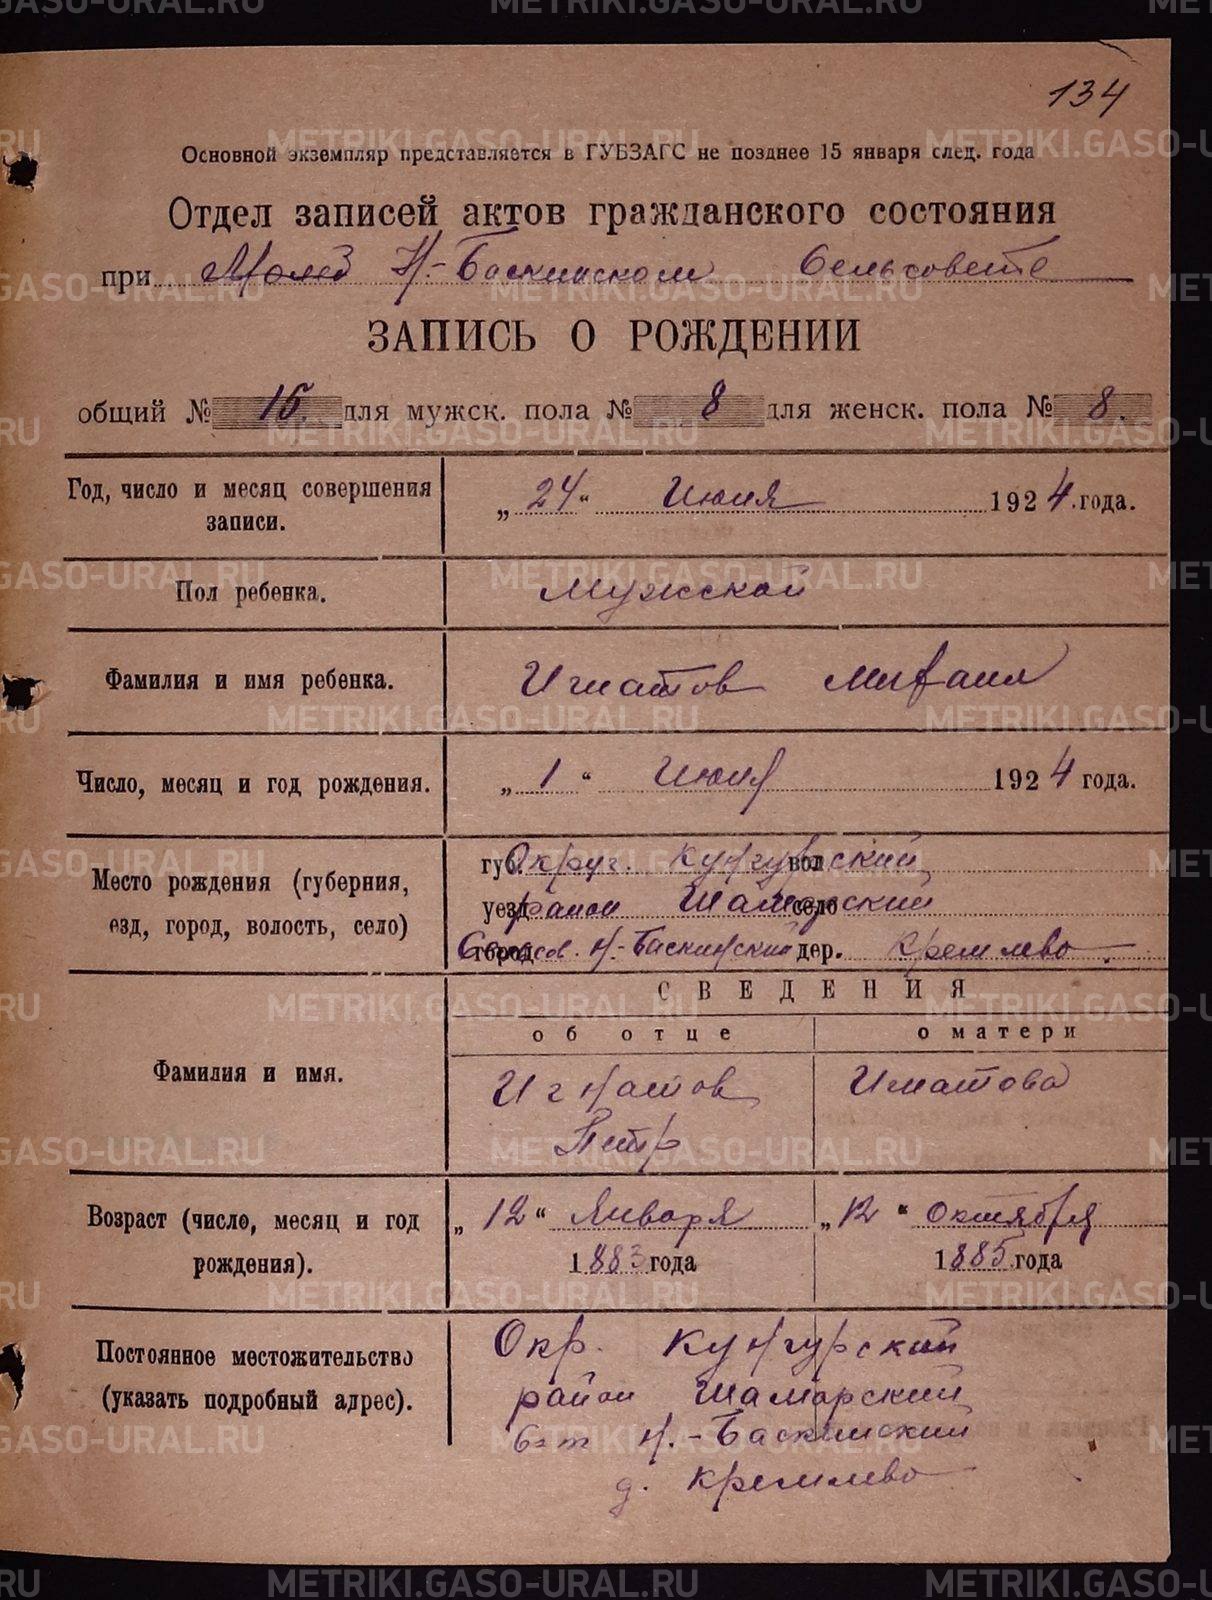 134
Основной экземпляр представляется в ГУБЗАГС не позднее 15 января след. года
Отдел записей актов гражданского состояния
при Н.-Баскинском Сельсовете
ЗАПИСЬ О РОЖДЕНИИ
общий № 16. для мужск. пола № 8 для женск. пола № 8.
Год, число и месяц совершения записи.
„24“ Июня 1924.года.
Пол ребенка.
Мужской
Фамилия и имя ребенка.
Игнатов Михаил
Число, месяц и год рождения.
„1“ Июня 1924 года.
Место рождения (губерния,
езд, город, волость, село)
губ. Округ. Кунгурский вол
уезд район Шамарский село
город Сельсов. Н-Баскинский дер. Кремлево.
СВЕДЕНИЯ
об отце
о матери
Фамилия и имя.
Игнатов
Петр
Игнатова
Возраст (число, месяц и год
рождения).
„12“ Января
1883 года
„12“ Октября
1885 года
Постоянное местожительство
(указать подробный адрес).
Окр. Кунгурский
район Шамарский
Н.-Баскинский
д. Кремлево
METRIKI.GASO-URAL.RU